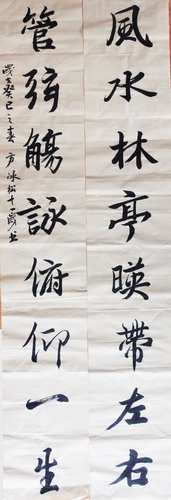 風水林亭暎帶左右
管弦觴詠俯仰一生
歲在癸巳之春 方冰松十一歲書